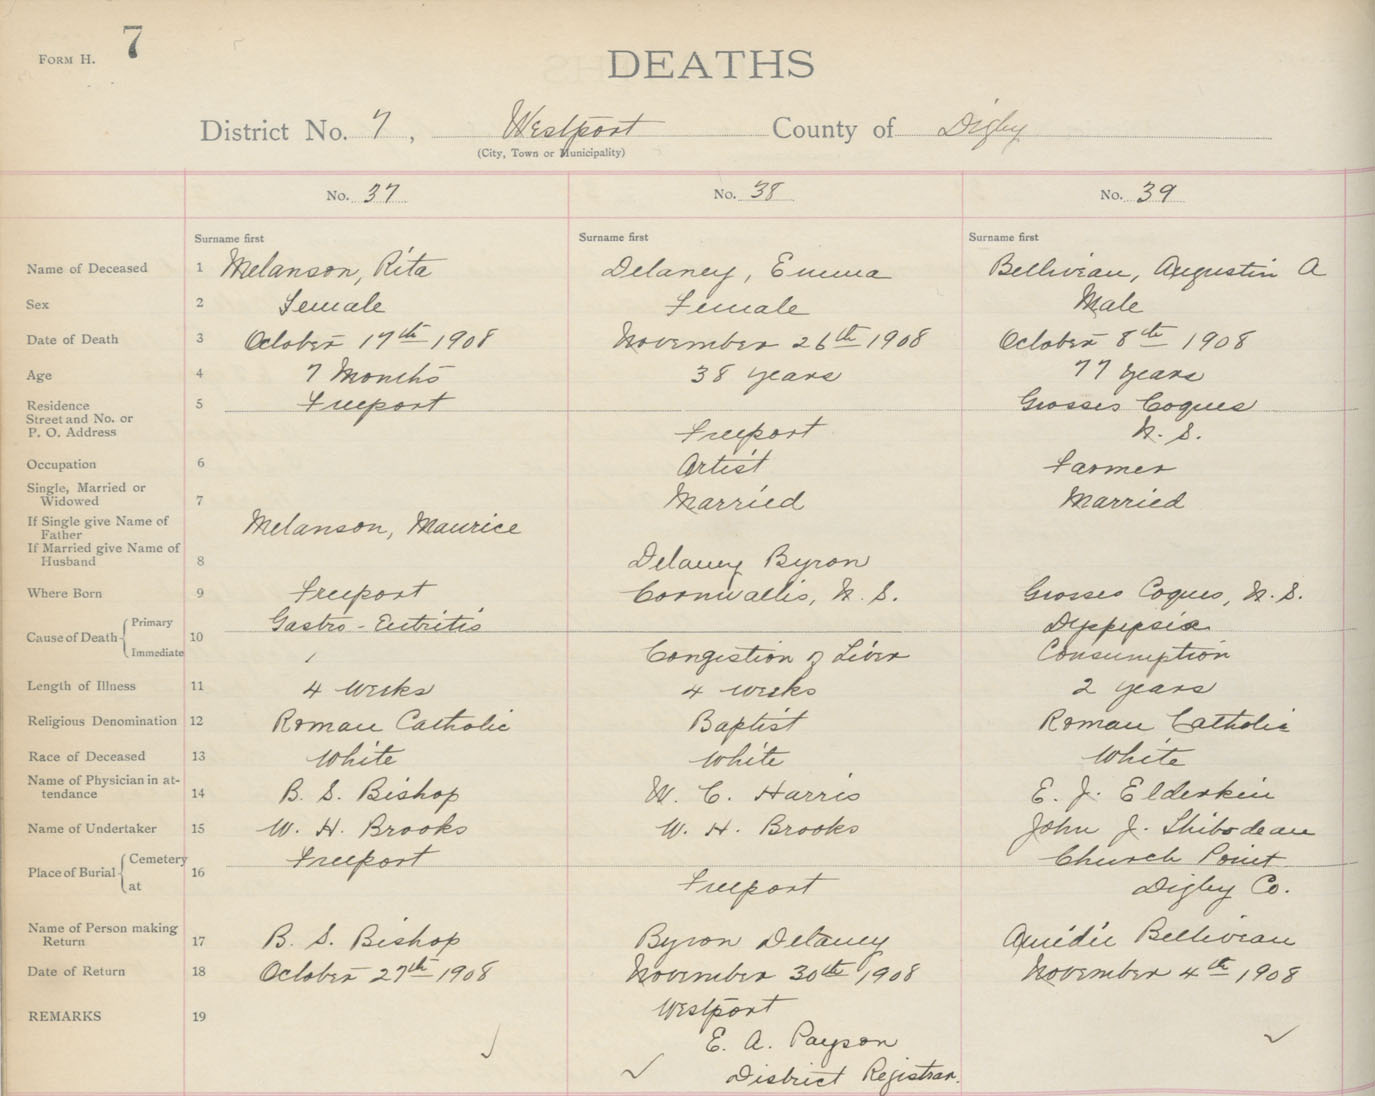 FORM H. 7
DEATHS
District No. 7, Westport County of Digby
(City, Town or Municipality)
No. 37 No. 38 No. 39
Surname first Surname first Surname first
Name of Deceased 1 Melanson, Rita Delaney, Emma Belliveau, Augustin A
Sex 2 Female Female Male
Date of Death 3 October 17th 1908 November 26th 1908 October 8th 1908
Age 4 7 Months 38 years 77 years
Residence 5 Freeport Grosses Coques
Street and No. or
P. O. Address Freeport N. S.
Occupation 6 Artist Farmer
Single, Married or
Widowed 7 Married Married
If Single give Name of
Father Melanson, Maurice
If Married give Name of
Husband 8 Delaney Byron
Where Born 9 Freeport Cornwallis, N. S. Grosses Coques, N. S.
Cause of Death 10 Primary Gastro-Entritis Dyspepsia
Immediate Congestion of Liver Consumption
Length of Illness 11 4 weeks 4 weeks 2 years
Religious Denomination 12 Roman Catholic Baptist Roman Catholic
Race of Deceased 13 White White White
Name of Physician in at-
tendance 14 B. S. Bishop W. C. Harris E. J. Elderkin
Name of Undertaker 15 W. H. Brooks W. H. Brooks John J. Thibodeau
Place of Burial 16 Cemetery Freeport Church Point
at Freeport Digby Co.
Name of Person making
Return 17 B. S. Bishop Byron Delaney Amédée Belliveau
Date of Return 18 October 27th 1908 November 30th 1908 November 4th 1908
REMARKS 19 Westport
E. A. Payson
District Registrar.